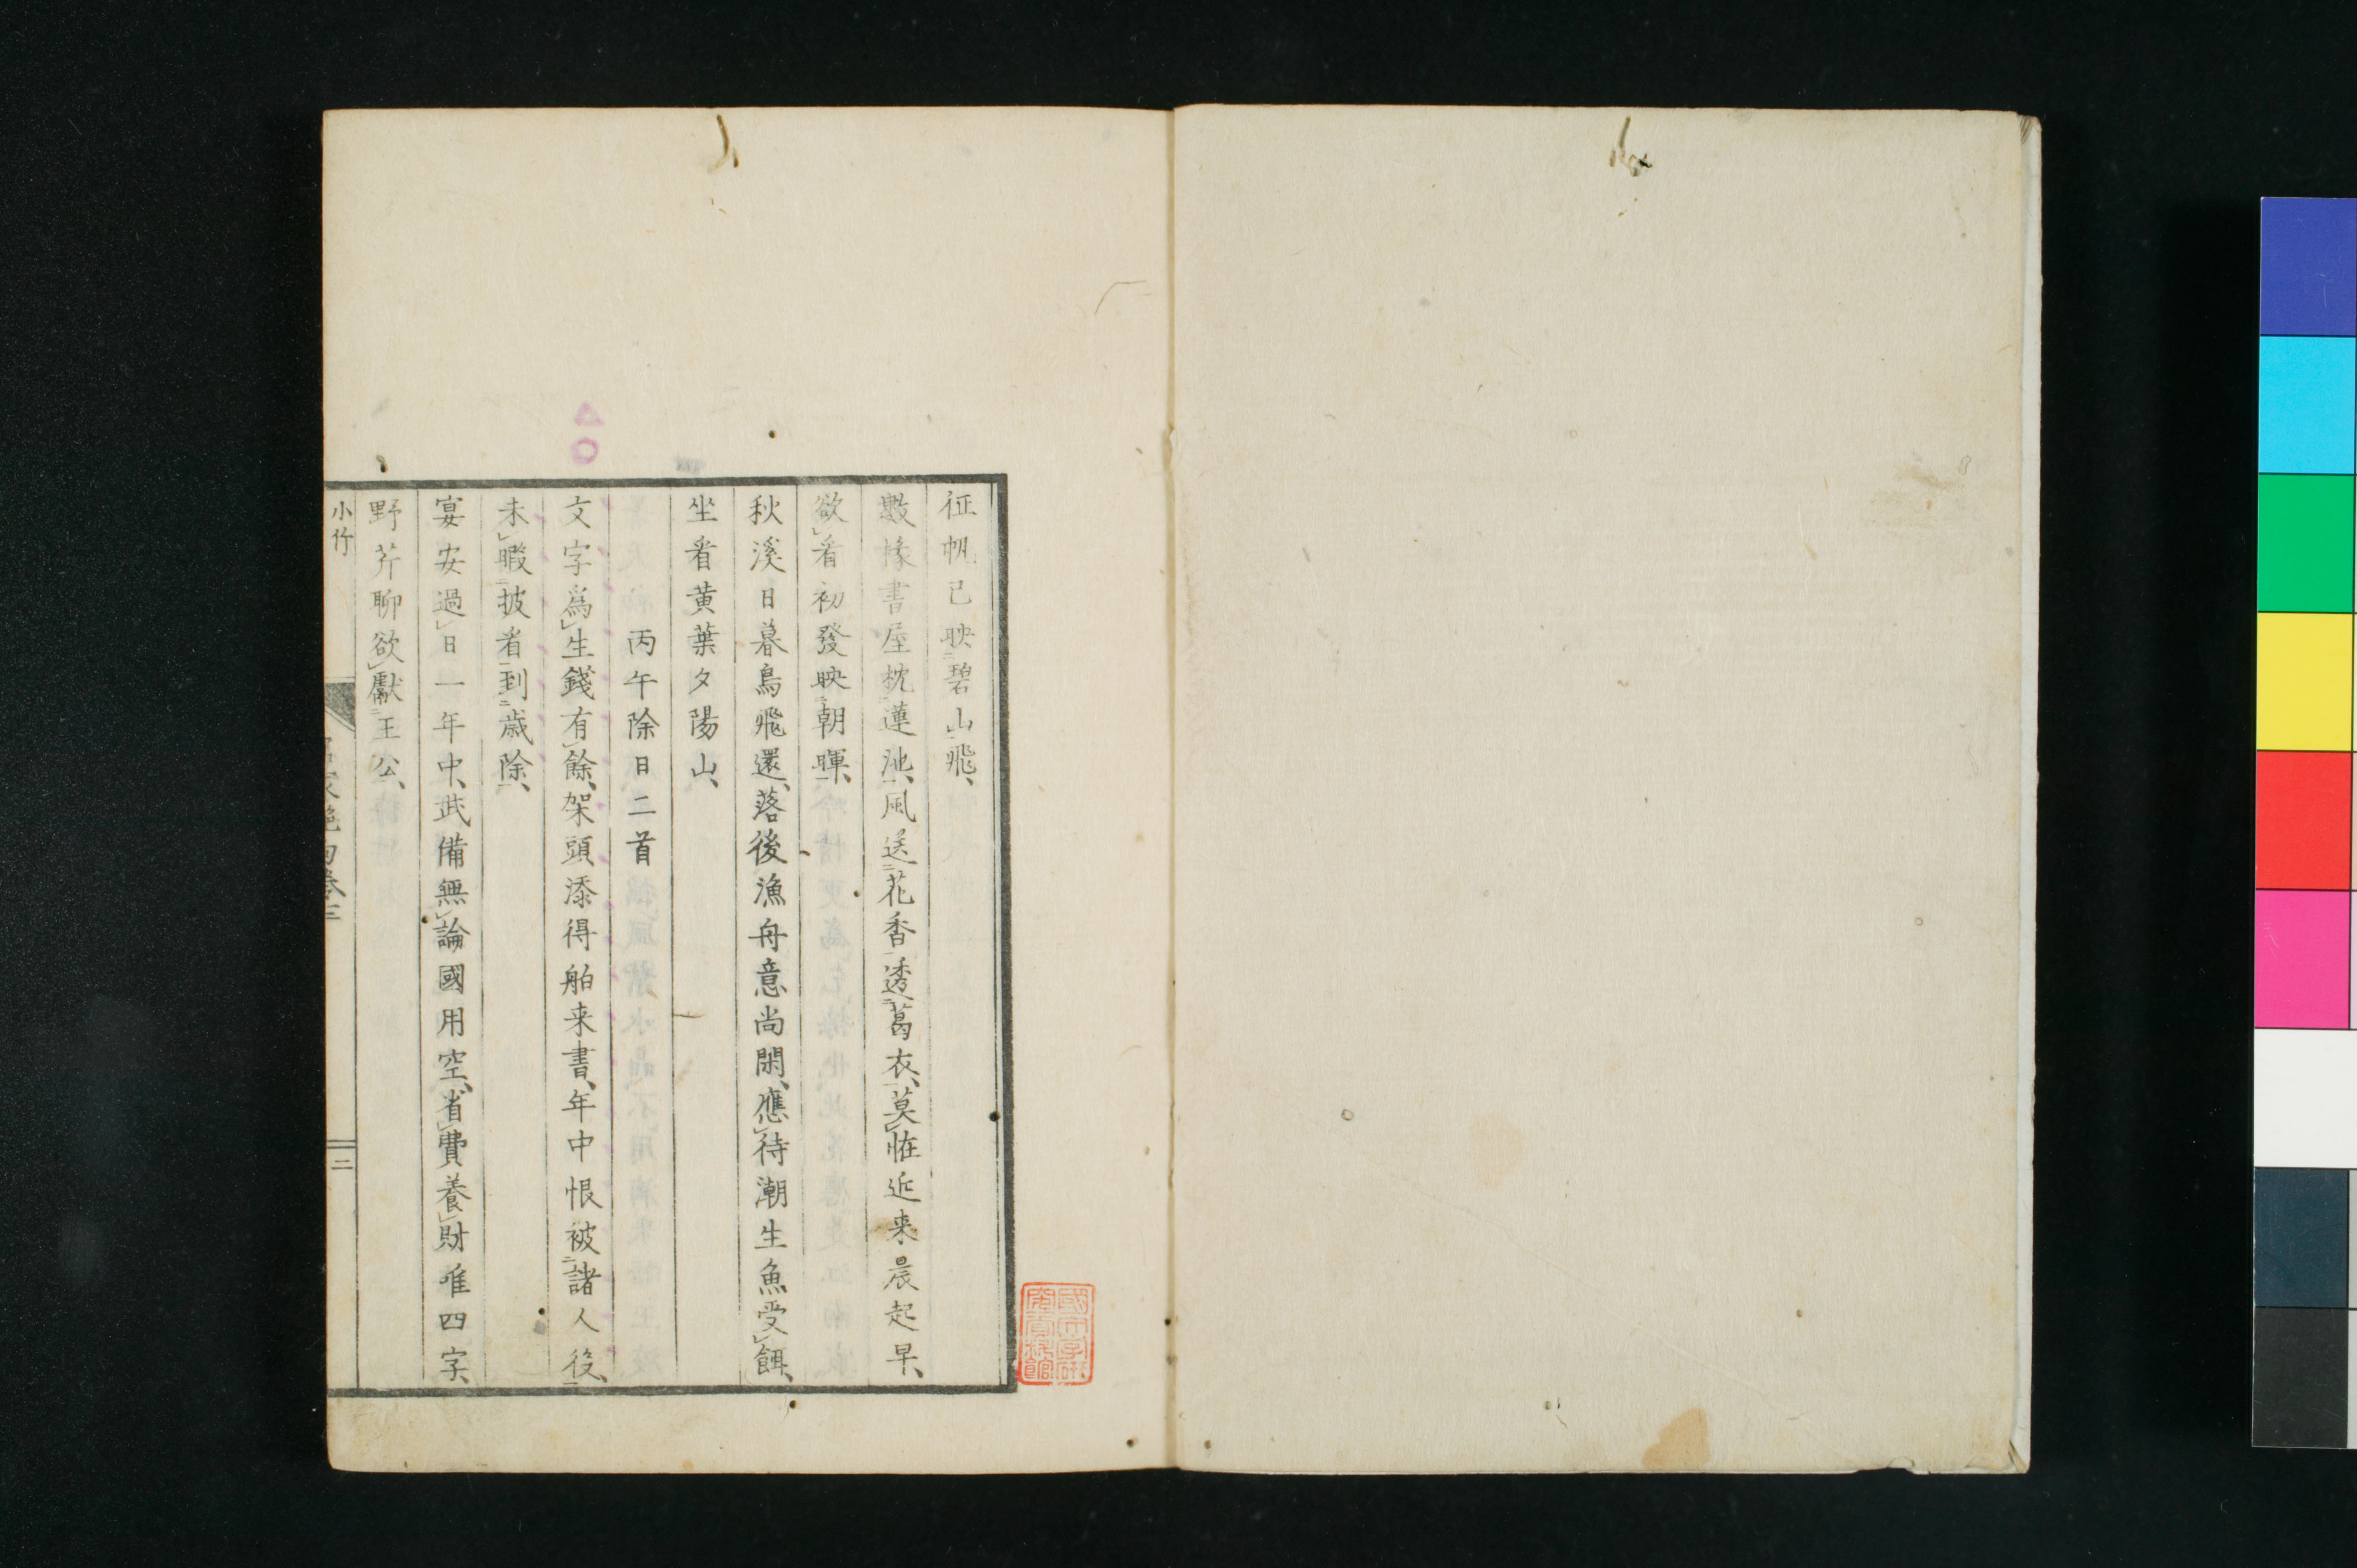 征帆已映碧山飛、
數椽書屋枕蓮池、風送花香透葛衣、莫怪近来晨起早、
欲看初發映朝暉、
秋溪日暮鳥飛還、落後漁舟意尚閑、應待潮生魚受餌、
坐看黄葉夕陽山、
丙午除日二首
文字爲生錢有餘、架頭添得舶来書、年中恨被諸人役、
未暇披看到歳除、
宴安過日一年中、武備無論國用空、省費養財唯四字、
野芹聊欲獻王公、
小竹
家絶句卷二
二